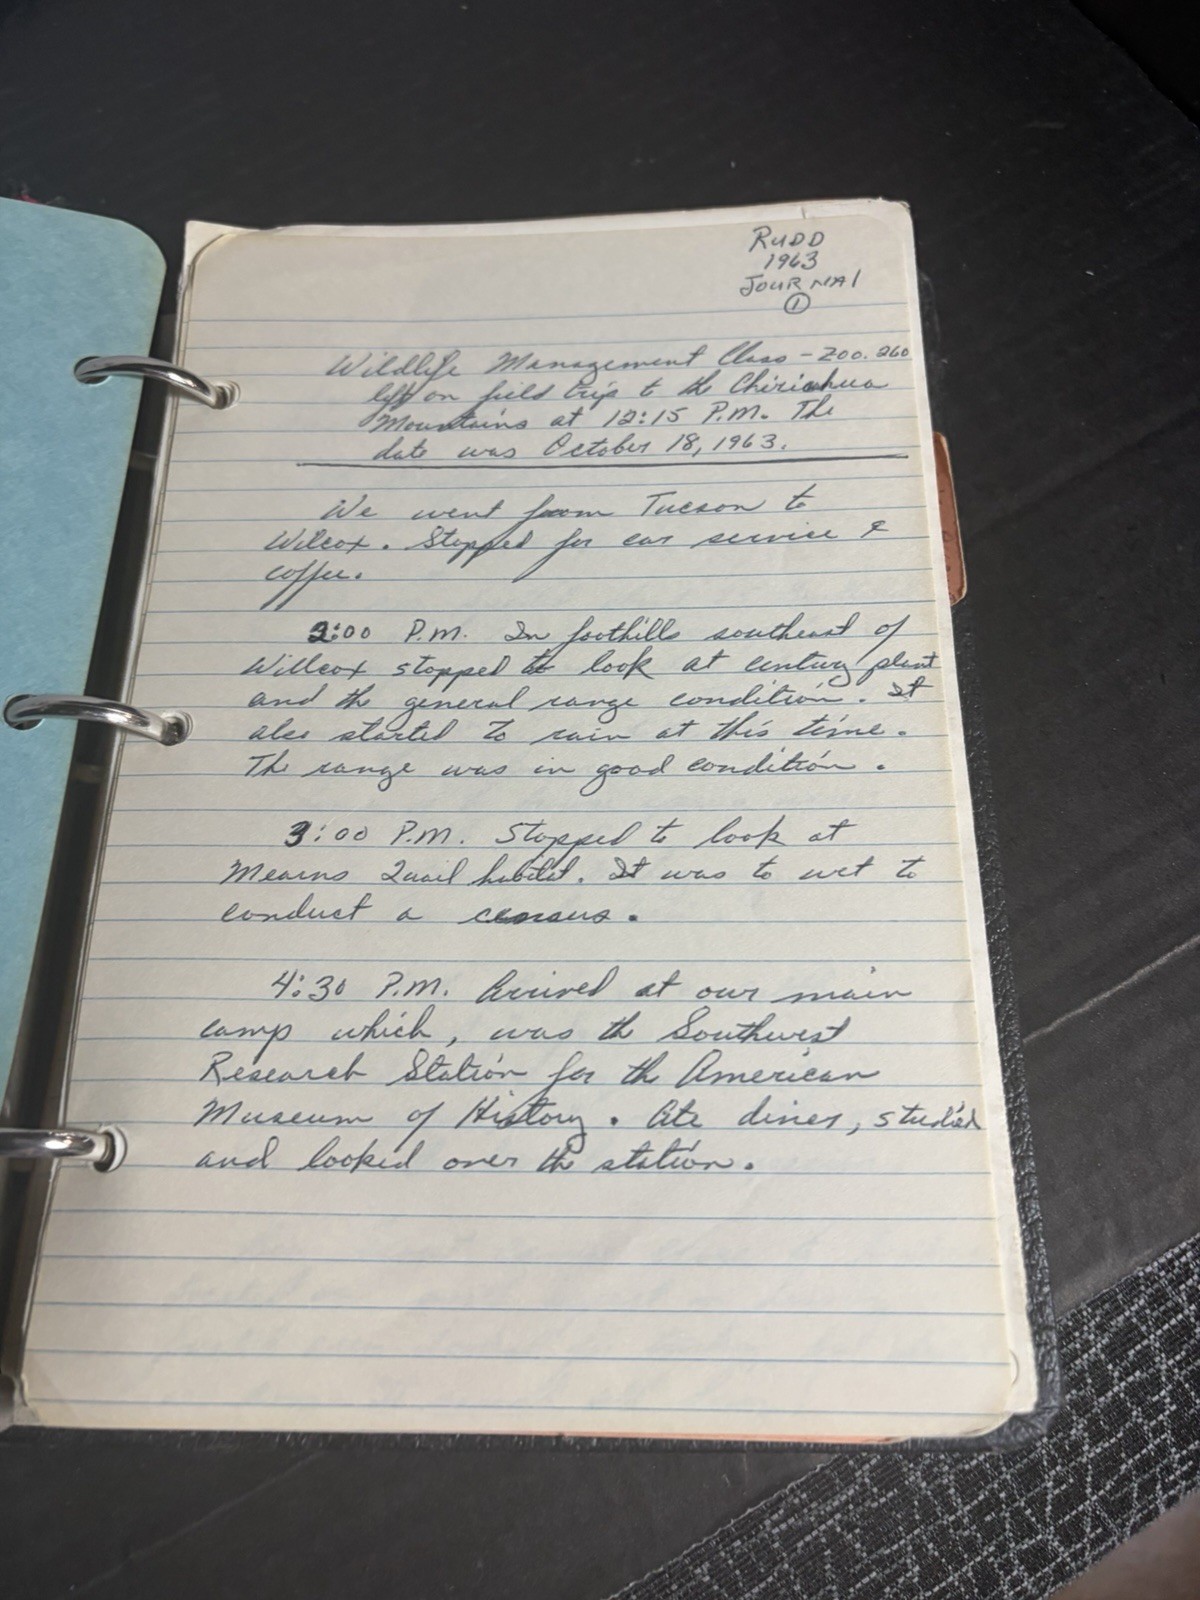 RUDD
1963
JOURNAL
1
Wildlife Management Class - Zoo. 260
left on field trip to the Chiricahua
Mountains at 12:15 P.M. The
date was October 18, 1963.
We went from Tucson to
Wilcox. Stopped for car service &
coffee.
2:00 P.M. In foothills southeast of
Willcox stopped to look at century plant
and the general range condition. It
also started to rain at this time.
The range was in good condition.
3:00 P.M. Stopped to look at
Mearns Quail habitat. It was to wet to
conduct a census.
4:30 P.M. Arrived at our main
camp which, was the Southwest
Research Station for the American
Museum of History. Ate diner, studied
and looked over the station.